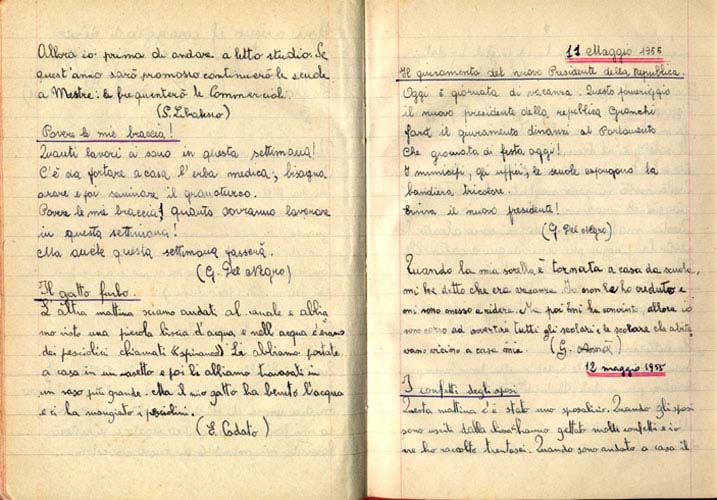 Allora io prima di andare a letto studio. Se
quest'anno sarò promosso continuerò le scuole
a Mestre: le frequenterò le Commerciali.
Povere le mie braccia!
Quanti lavori ci sono in questa settimana!
C'è da portare a casa l'erba medica; bisogna
arare e poi seminare il granoturco.
Povere le mie braccia! quanto dovranno lavorare
in questa settimana!
Ma anche questa settimana passerà.
(G. Del Negro)
Il gatto furbo.
L'altra mattina siamo andati al canale e abbia
mo visto una piccola biscia d'acqua e nell'acqua c'erano
dei pesciolini chiamati (spinarei) Li abbiamo portati
a casa in un vasetto e poi li abbiamo travasati in
un vaso più grande. Ma il mio gatto ha bevuto l'acqua
e ci ha mangiato i pesciolini.
(E. Codato)
11 Maggio 1955
Il giuramento del nuovo Presidente della Repubblica.
Oggi è giornata di vacanza. Questo pomeriggio
il nuovo presidente della repubblica Gronchi
farà il giuramento dinanzi al Parlamento
Che giornata di festa oggi!
I municipi, gli uffici, le scuole espongono la
bandiera tricolore.
Evviva il nuovo presidente!
(G. Del Negro)
Quando la mia sorella è tornata a casa da scuola,
mi ha detto che era vacanza. Io non le ho creduto e
mi sono messo a ridere. Ma poi mi ha convinto, allora io
sono corso ad avvertire tutti gli scolari e le scolare che abita
vano vicino a casa mia. (G.
12 maggio 1955
I confetti degli sposi
Questa mattina c'è stato uno sposalizio. Quando gli sposi
sono usciti dalla chiesa hanno gettato molti confetti e io
ne ho raccolto trentasei. Quando sono andato a casa il